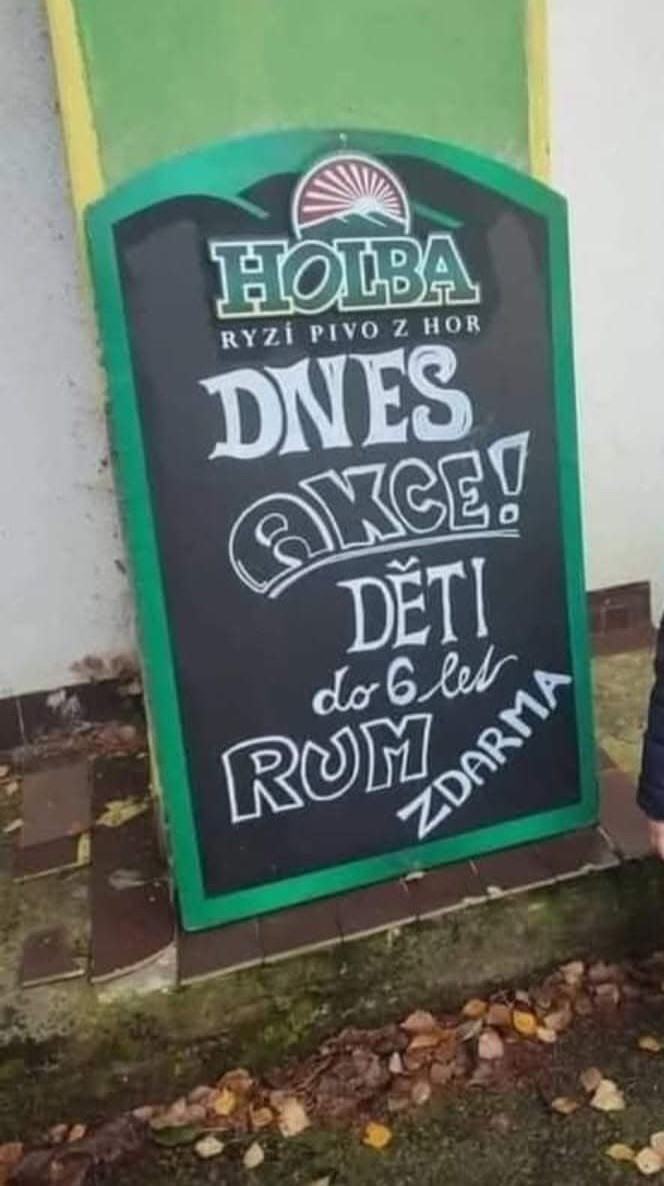 HOLBA
RYZÍ PIVO Z HOR
DNES
AKCE!
DĚTI
do 6 let
RUM
ZDARMA